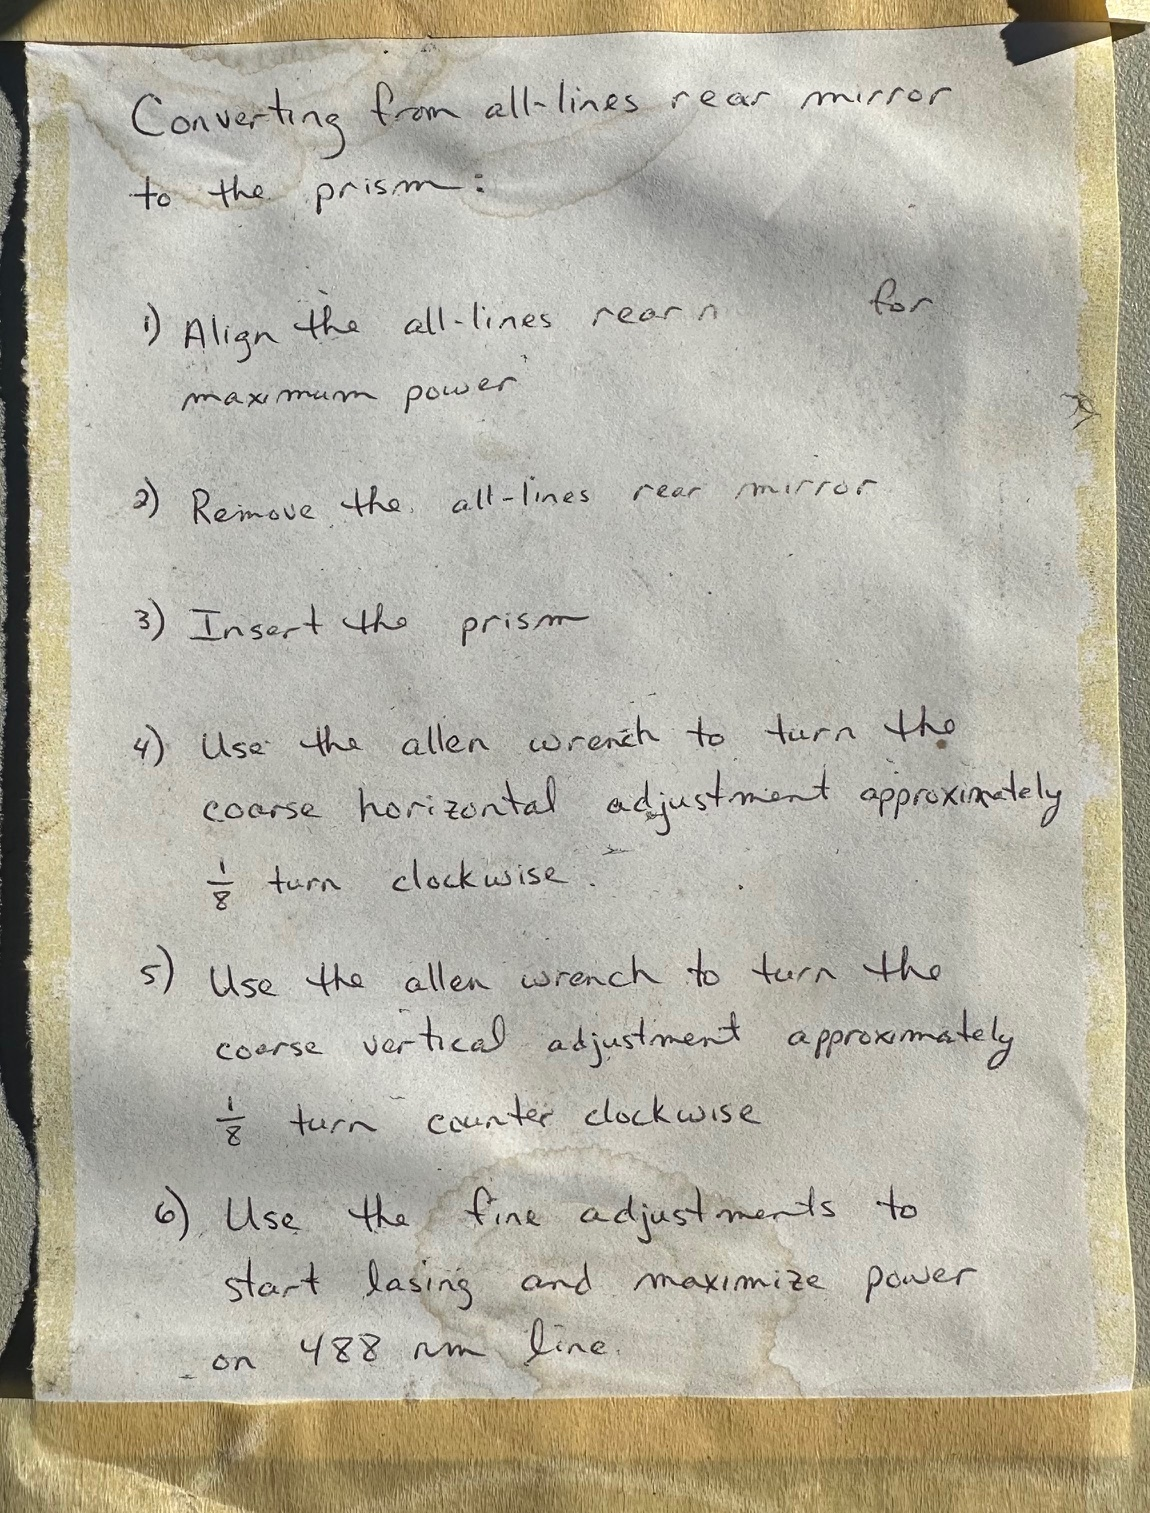 Converting from all-lines rear mirror
to the prism:
1) Align the all-lines rear for
maximum power
2) Remove the all-lines rear mirror
3) Insert the prism
4) Use the allen wrench to turn the
coarse horizontal adjustment approximately
1/8 turn clockwise.
5) Use the allen wrench to turn the
coarse vertical adjustment approximately
1/8 turn counter clockwise
6) Use the fine adjustments to
start lasing and maximize power
on 488 nm line.